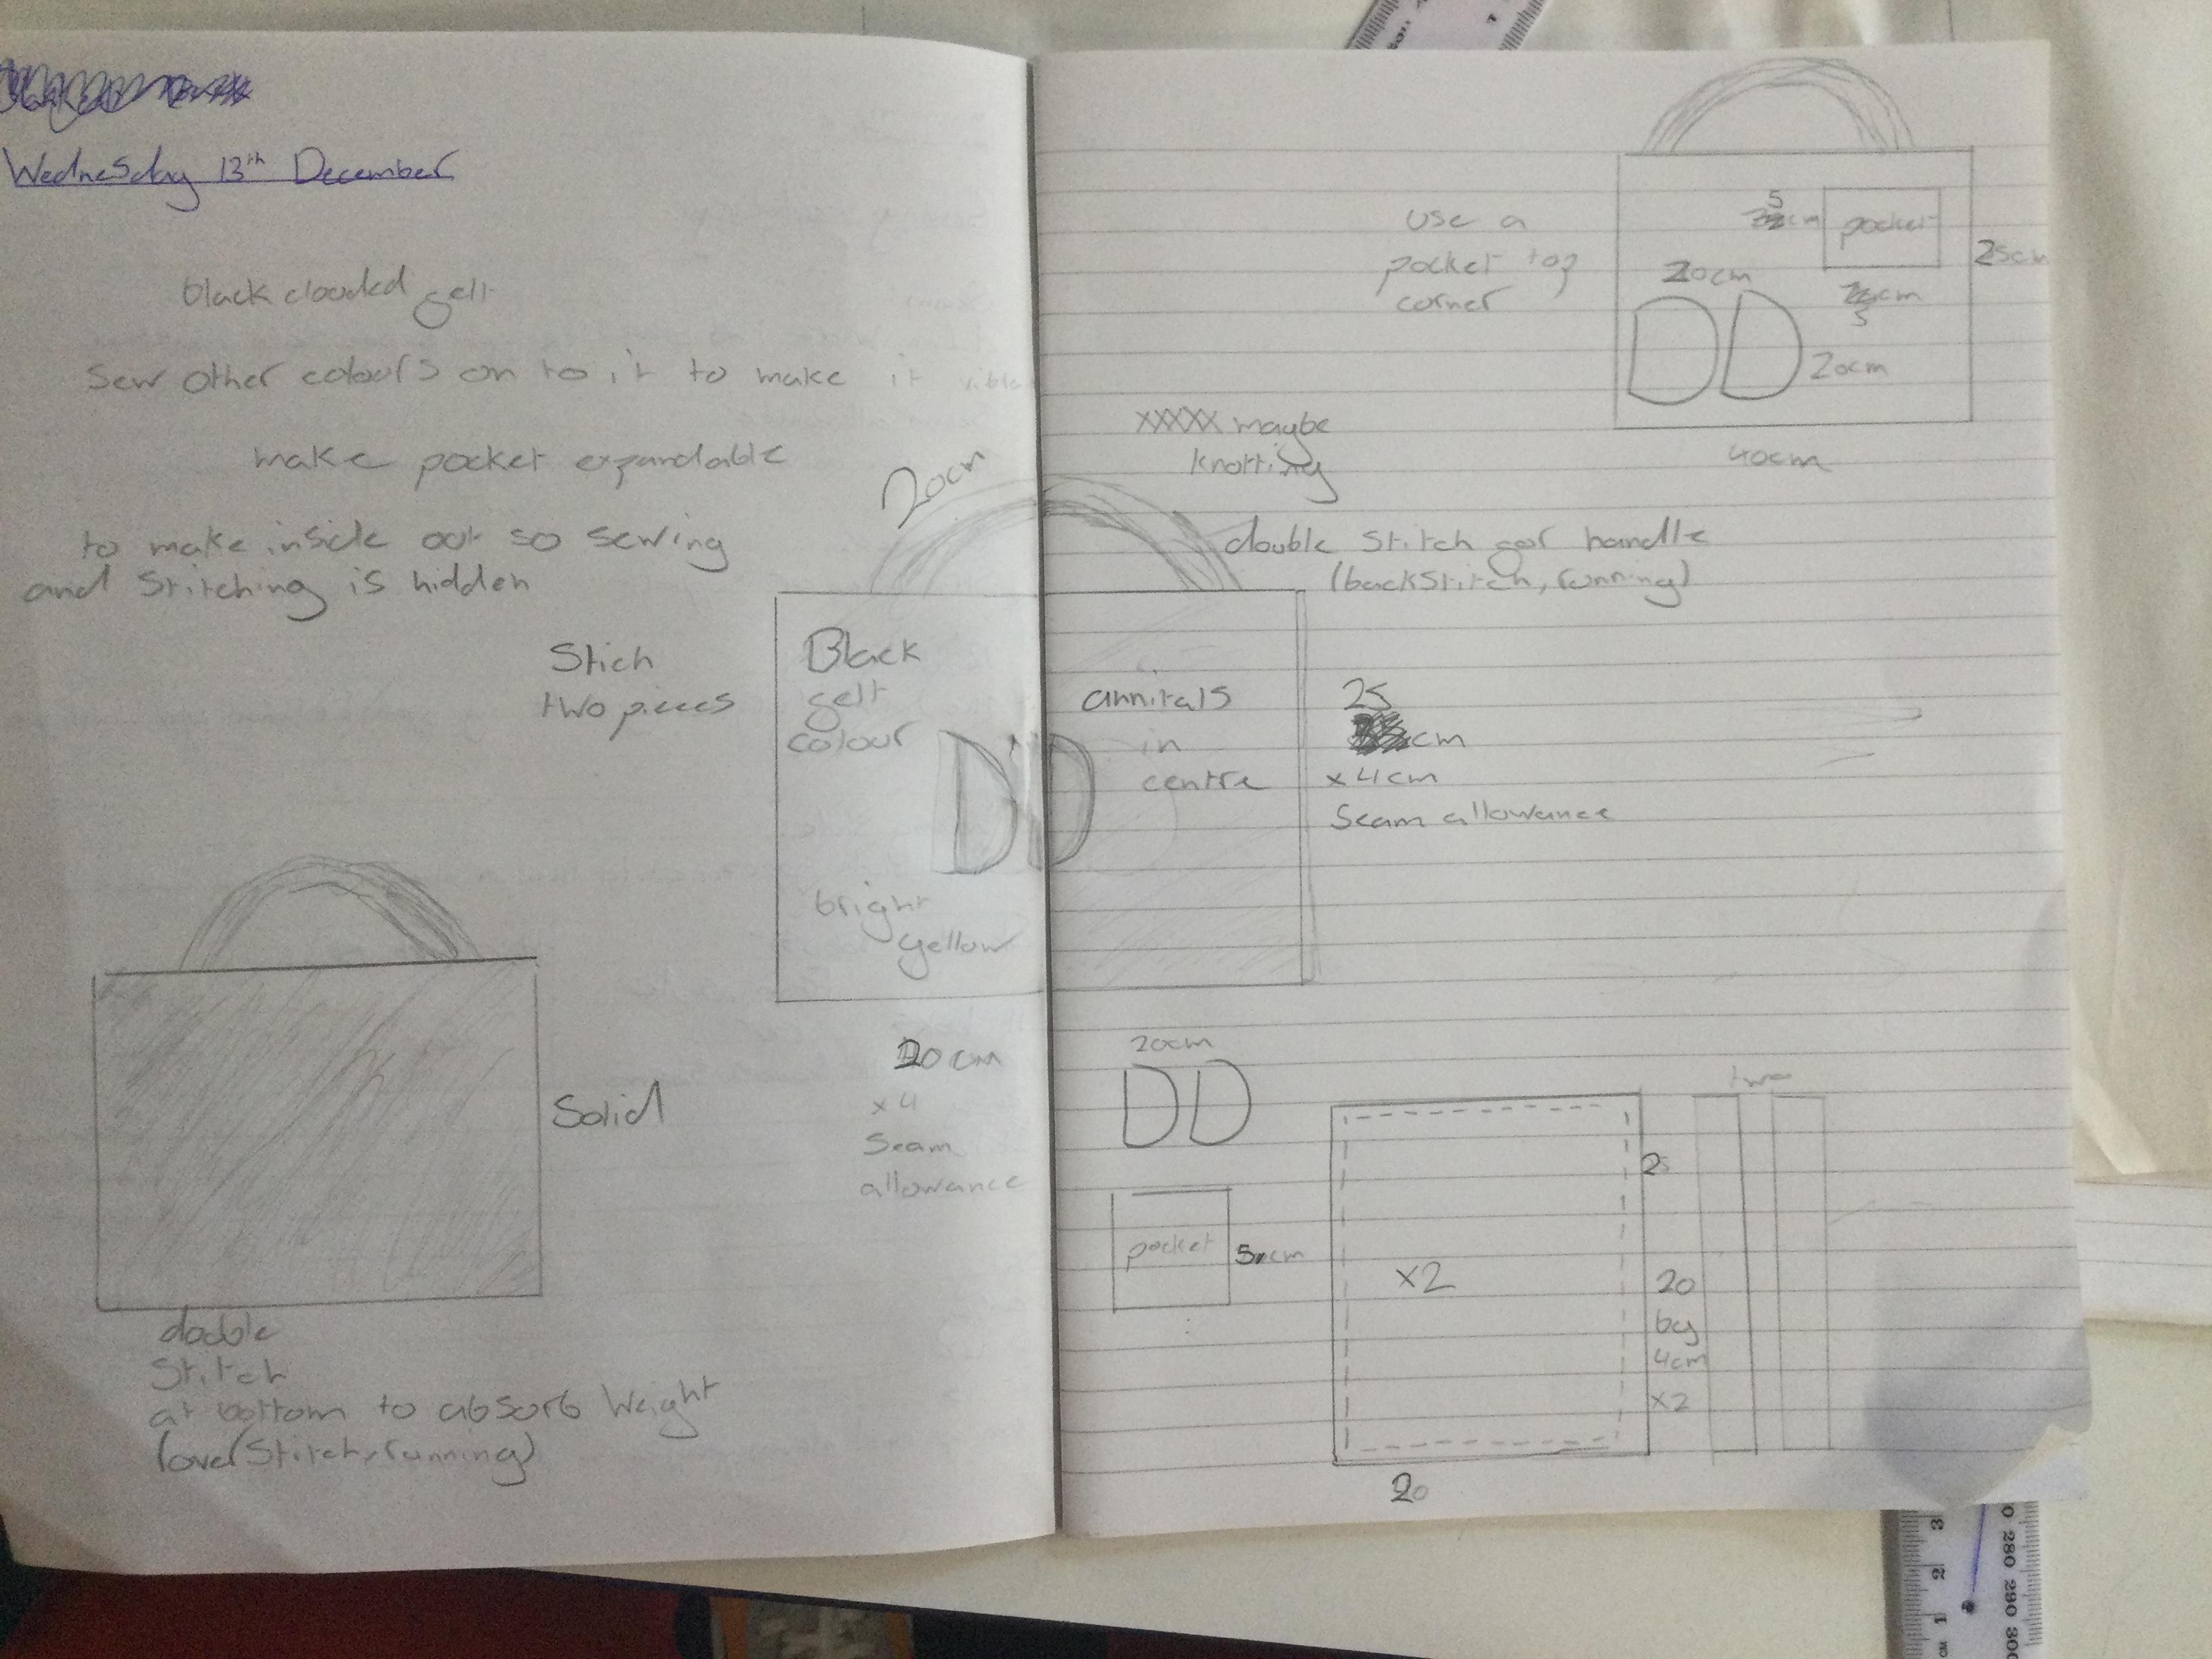 Wednesday 13th December
black clouded felt
Sew other colours on to it to make it
make pocket expandable
to make inside out so sewing
and Stitching is hidden
Stich
two pieces
20cm
Black
felt
colour
DD
bright
yellow
annitals
in
centre
Solid
double
Stitch
at bottom to absorb Weight
(overstitch, running)
20cm
x4
Seam
allowance
use a
pocket top
corner
5
cm
pocket
25cm
20cm
cm
5
DD
20cm
40cm
xxxxx maybe
knotting
double Stitch for handle
(backstitch, running)
25
cm
x4cm
Seam allowance
20cm
DD
pocket
5cm
x2
25
20
two
20
by
4cm
x2